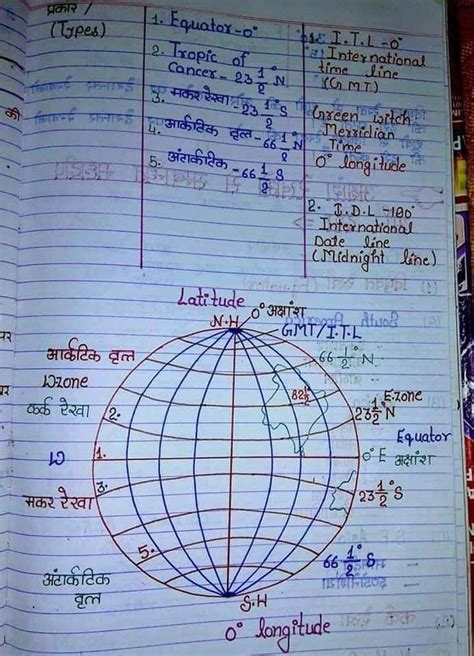 प्रकार /
(Types)
1. Equator-0°
2. Tropic of
Cancer-23 1/2° N
3. मकर रेखा-23 1/2° S
4. आर्कटिक वृत्त-66 1/2° N
5. अंटार्कटिक-66 1/2° S
1. I.T.L-0°
International
time line
(GMT)
Green witch
Merridian
Time
0° longitude
2. I.D.L-180°
International
Date line
(Midnight line)
Latitude
N.H
0° अक्षांश
GMT/I.T.L
आर्कटिक वृत्त
66 1/2° N
W zone
82 1/2°
E.zone
कर्क रेखा
2.
23 1/2° N
Equator
W
1.
0° E अक्षांश
मकर रेखा
3.
23 1/2° S
5.
66 1/2° S
अंटार्कटिक
वृत्त
S.H
0° longitude